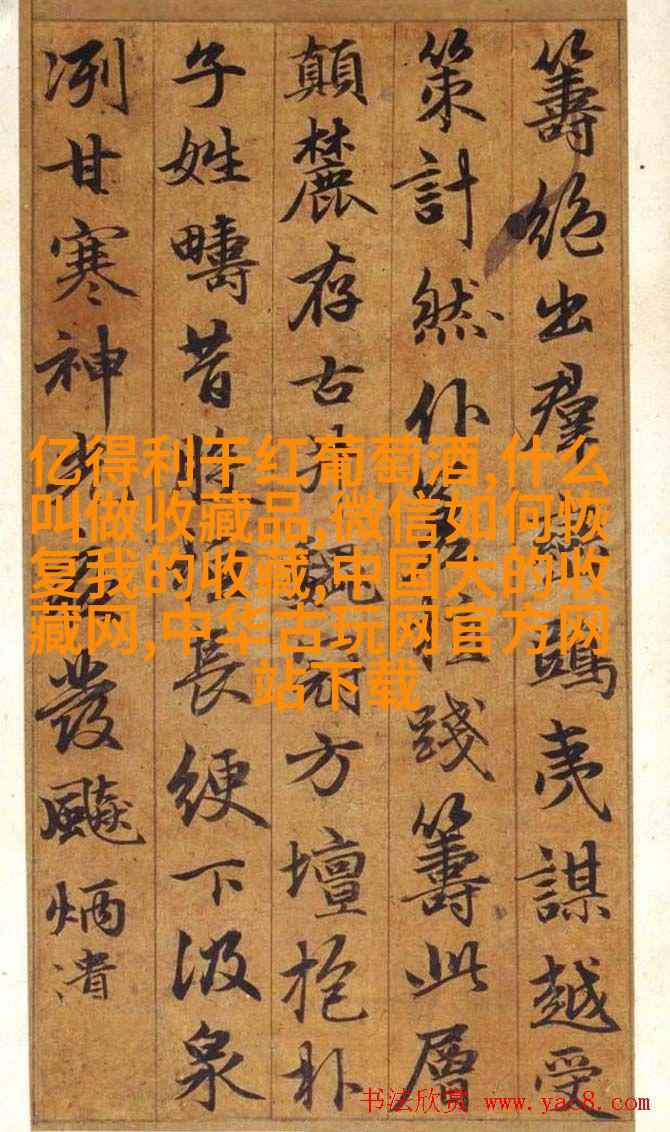 籌絕出羣鴟夷謀越受
策計然仆踐籌此層
顛麓存古方壇抱朴
子姓疇昔長綆下汲泉
冽甘寒神發飈炳潰
亿得利干红葡萄酒,什么
叫做收藏品,微信如何恢
复我的收藏,中国大的收
藏网,中华古玩网官方网
站下载
书法欣赏 www.yac8.com